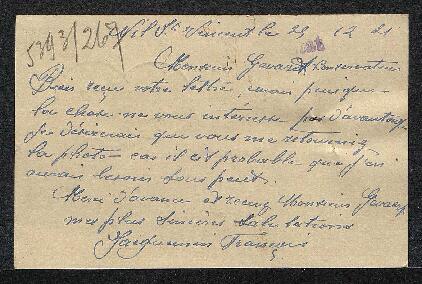 5393/267
St Vincent le 29 12 21
Monsieur Gevaert Conservateur
Bien reçu votre lettre, mais puisque
la chose ne vous interesse pas d'avantage
Je désirerais que vous me retourniez
la photo car il est probable que j'en
aurai besoin sous peut.
Merci d'avance et recevez Monsieur Gevaert
mes plus sincères salutations
Jacquemin François